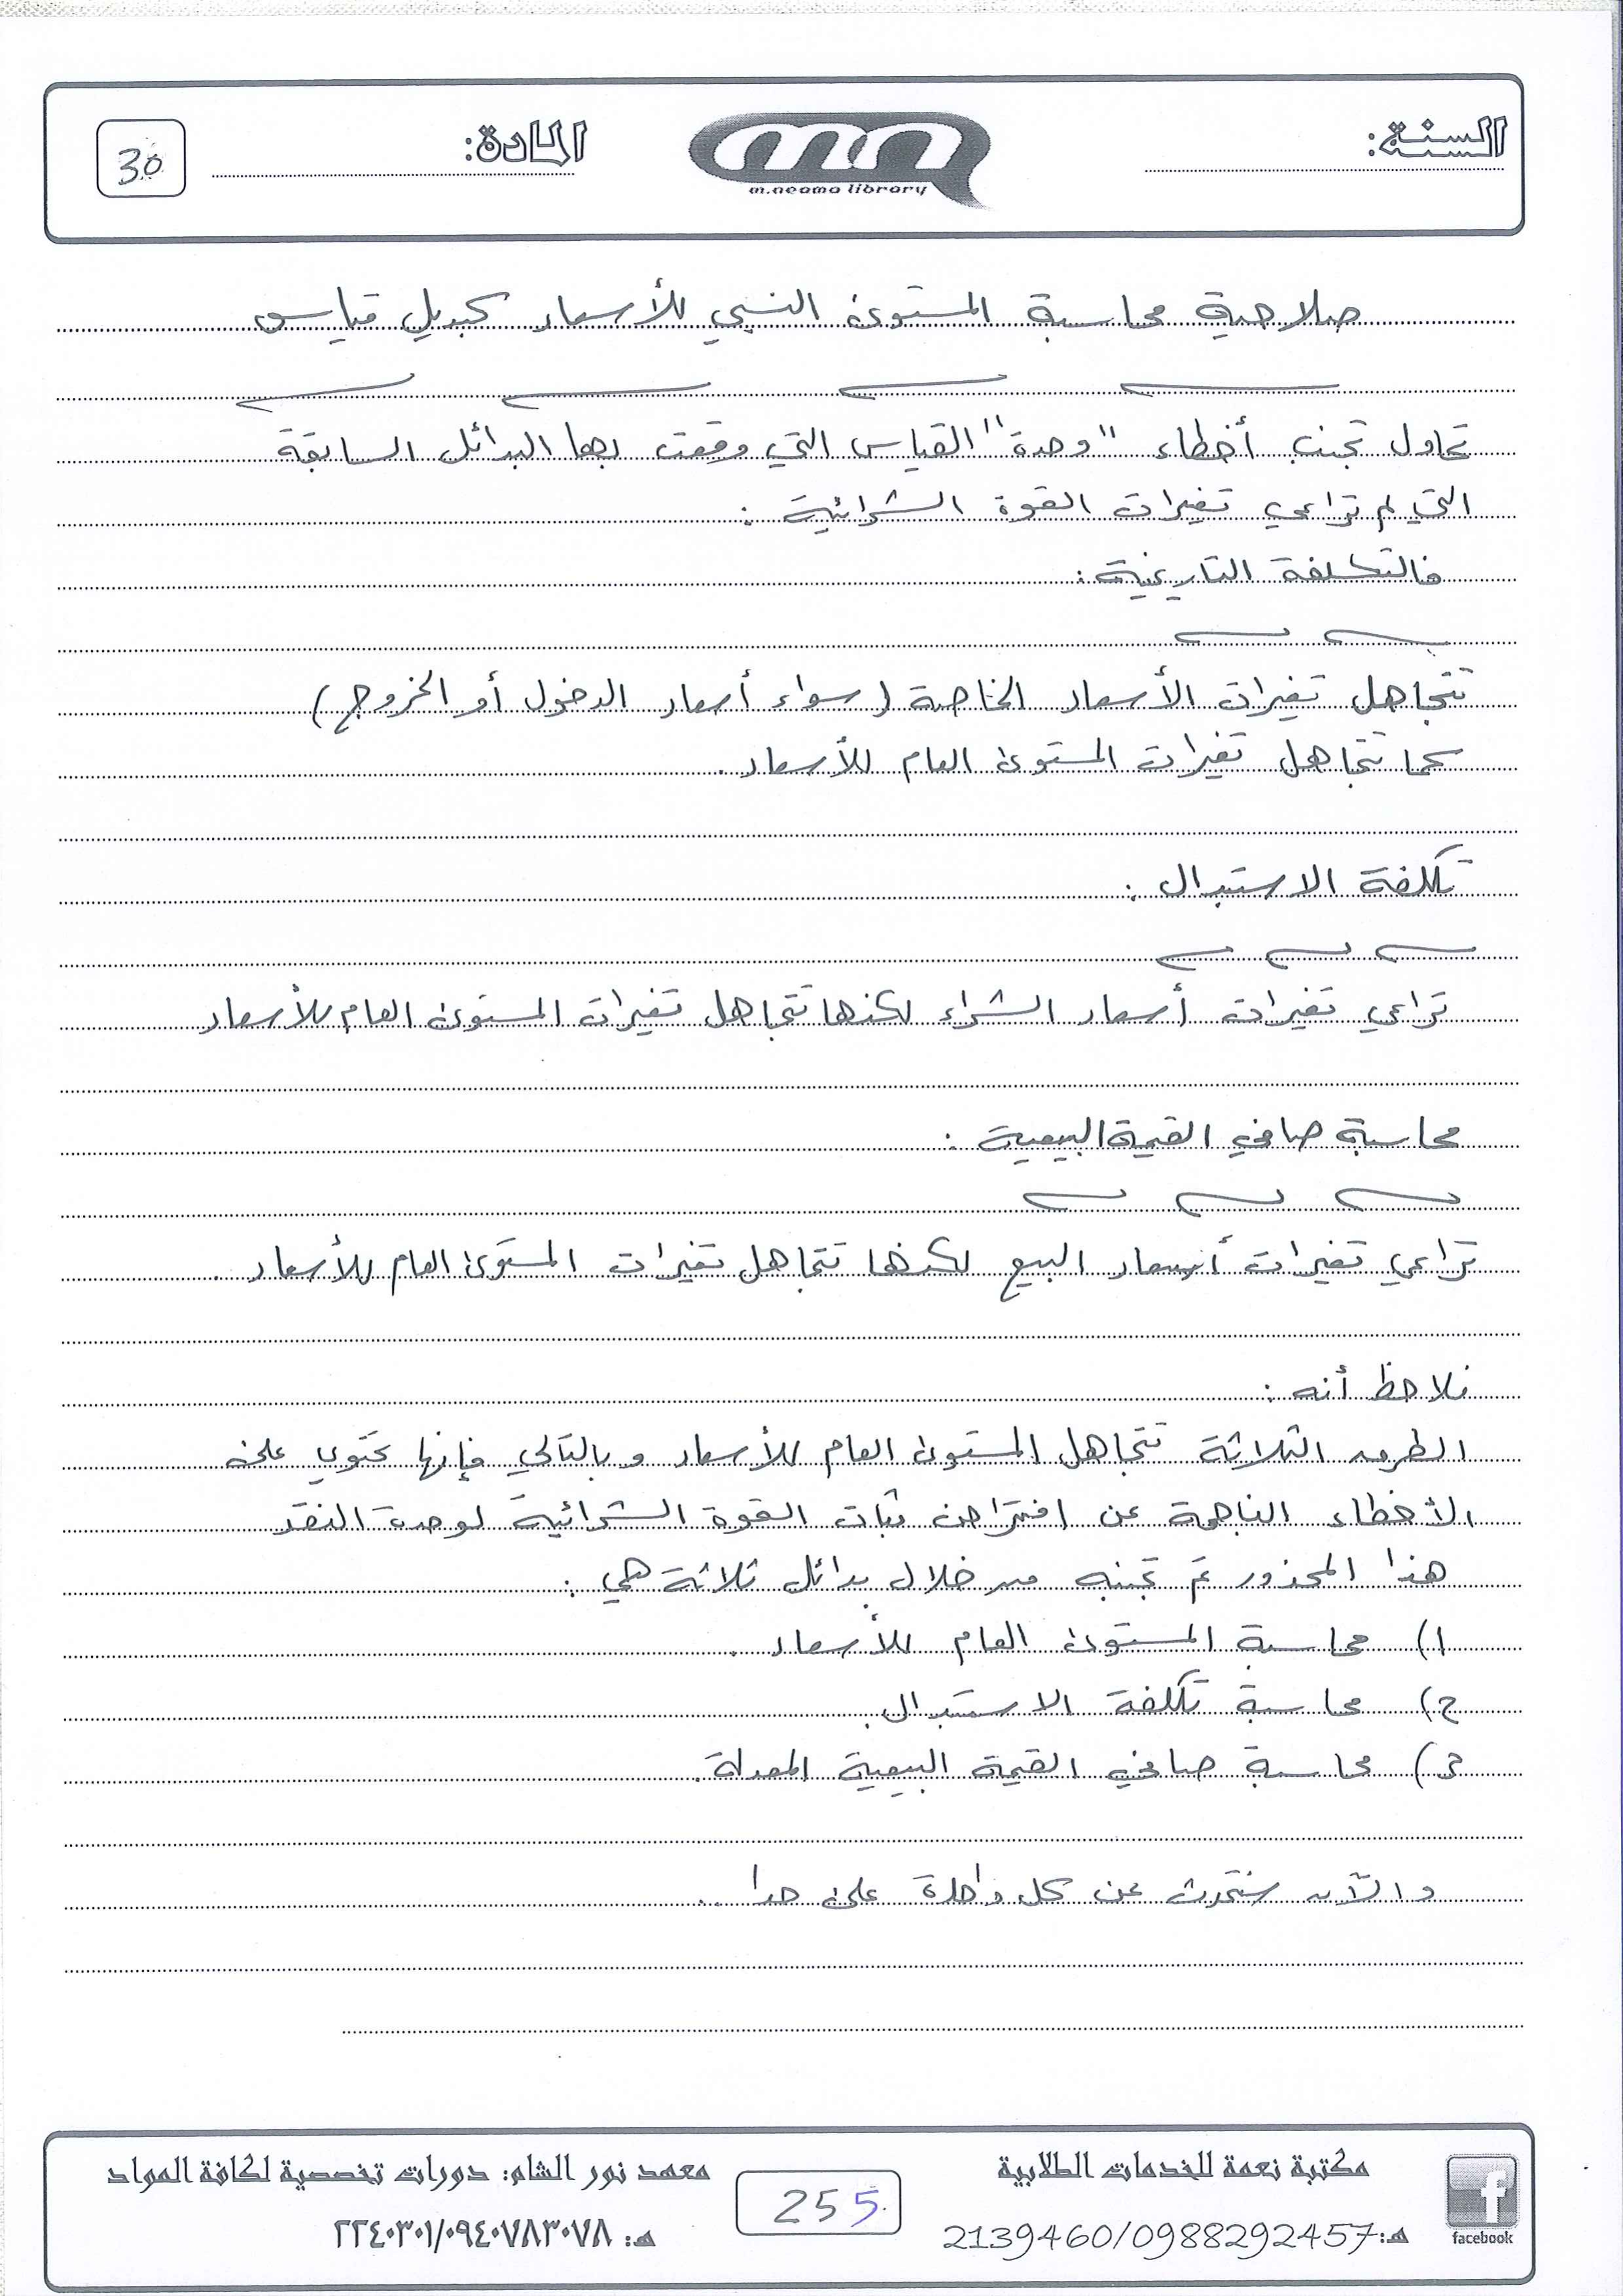 السنة:
m.neama library
المادة:
30
صلاحية محاسبة المستوى النسبي للأسعار كبديل قياس
تحاول تجنب أخطاء "وحدة" القياس التي وقعت بها البدائل السابقة
التي لم تراعي تغيرات القوة الشرائية :
فالتكلفة التاريخية :
تتجاهل تغيرات الأسعار الخاصة (سواء أسعار الدخول أو الخروج)
كما تتجاهل تغيرات المستوى العام للأسعار.
تكلفة الاستبدال :
تراعي تغيرات أسعار الشراء لكنها تتجاهل تغيرات المستوى العام للأسعار
محاسبة صافي القيمة البيعية :
تراعي تغيرات أسعار البيع لكنها تتجاهل تغيرات المستوى العام للأسعار.
نلاحظ أنه :
الطرق الثلاثة تتجاهل المستوى العام للأسعار وبالتالي فإنها تحتوي على
الأخطاء الناجمة عن افتراض ثبات القوة الشرائية لوحدة النقد
هذا المحذور تم تجنبه من خلال بدائل ثلاثة هي :
١) محاسبة المستوى العام للأسعار.
٢) محاسبة تكلفة الاستبدال.
٣) محاسبة صافي القيمة البيعية المعدلة.
والآن سنتحدث عن كل واحدة على حدا ..
مكتبة نعمة للخدمات الطلابية
هـ: 2139460/0988292457
facebook
255
معهد نور الشام: دورات تخصصية لكافة المواد
هـ: ٢٢٤٠٣٠١/٠٩٤٠٧٨٣٠٧٨